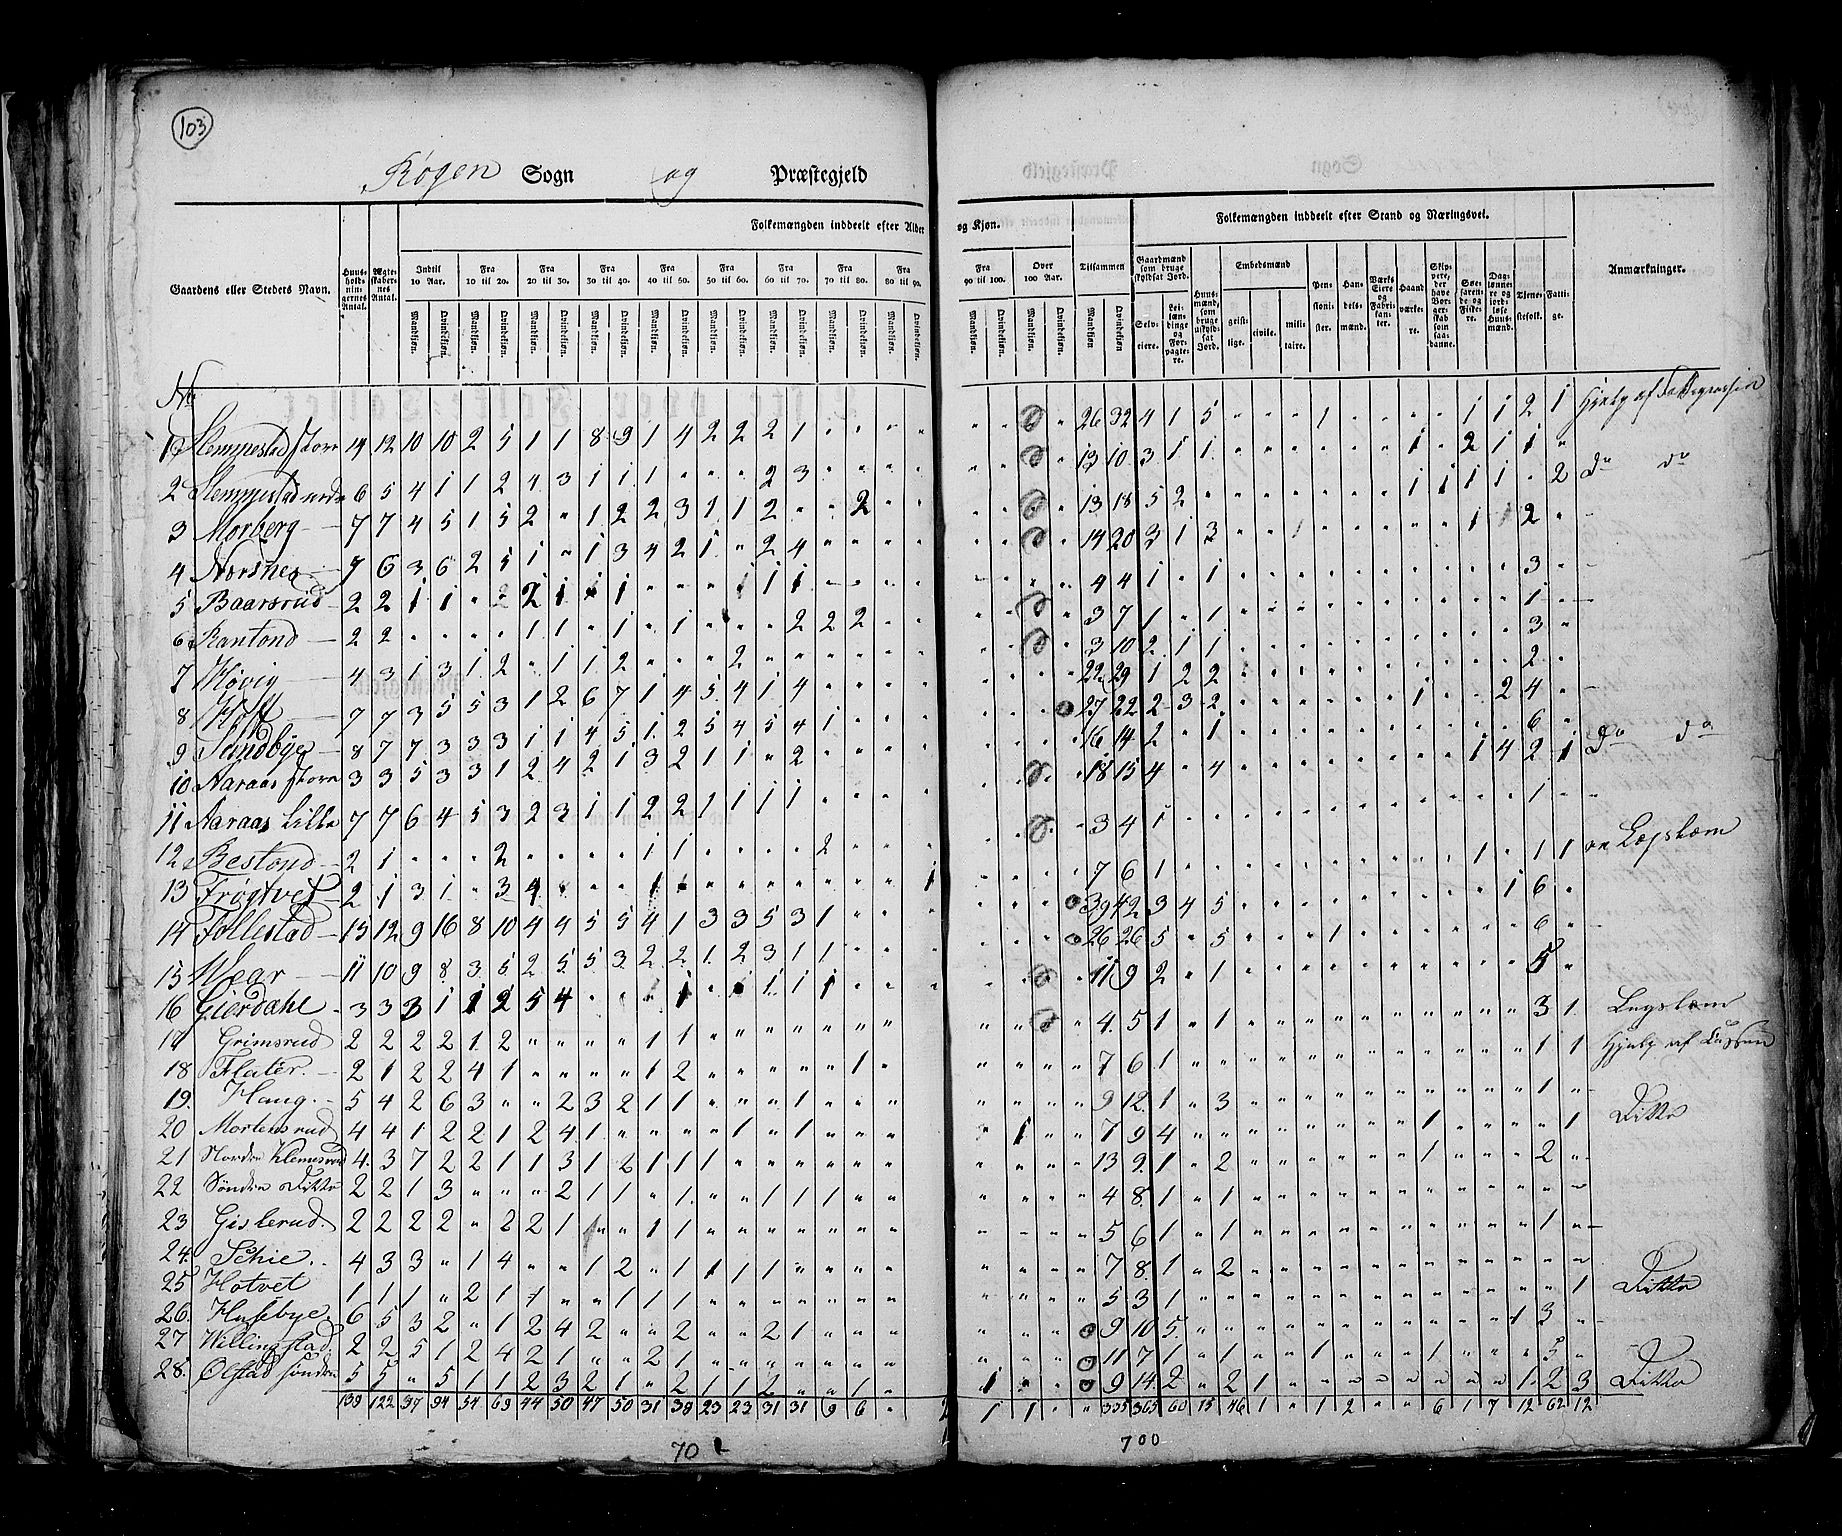 103
Røgen Sogn og Præstegjeld
Gaardens eller Steders Navn.
Huus-holdningernes Antal.
Ægteskabernes Antal.
Folkemængden inddeelt efter Alder og Kjøn.
Indtil 10 Aar.
Fra 10 til 20.
Fra 20 til 30.
Fra 30 til 40.
Fra 40 til 50.
Fra 50 til 60.
Fra 60 til 70.
Fra 70 til 80.
Fra 80 til 90.
Fra 90 til 100.
Over 100 Aar.
Tilsammen
Mandkiøn. Qvindekiøn.
Folkemængden inddeelt efter Stand og Næringsvei.
Gaardmænd som bruge skyldsat Jord.
Selveiere.
Leilændinge og Forpagtere.
Huusmænd, som bruge uskyldsat Jord.
Embedsmænd
geistlige.
civile.
militaire.
Pensionister.
Handelsmænd.
Værks Eiere og Fabrikanter.
Haandværkere.
Skippere, der have Borgerskab som saadanne.
Søefarende og Fiskere.
Daglønnere og jordløse Huusmænd.
Tjenestefolk.
Fattige.
Anmærkninger.
No
1 Slemmestad store 14 12 10 10 2 5 1 1 8 9 1 4 2 2 2 1 26 32 4 1 5 1 1 1 2 1
2 Slemmestad nedre 6 5 4 1 1 2 4 3 1 1 1 2 3 13 10 3 1 1 1 2 1 1 Do Do
3 Morberg 7 7 4 5 1 5 2 1 2 2 3 1 1 2 2 13 18 5 2 1 1 1 1 2
4 Norsnes 7 6 3 6 2 5 1 1 3 4 2 1 2 4 14 20 3 1 3 1 2
5 Baarsrud 2 2 1 1 2 2 1 1 1 1 1 1 4 4 1 1 3
6 Rantond 2 2 1 1 1 1 2 2 2 3 7 1 1 1
7 Høvig 4 3 1 3 1 2 1 1 2 2 3 10 2 1 1 3
8 Hoff 7 7 3 5 5 3 1 2 6 7 1 4 5 4 1 4 22 29 1 2 2 2
9 Sundbye 8 7 7 3 3 3 1 1 4 5 1 2 5 4 5 4 1 27 22 2 3 2 1 2 4
10 Aaraas store 3 3 5 3 3 1 2 4 2 1 3 2 1 1 2 16 14 2 1 6
11 Aaraas Lille 7 7 6 4 5 3 2 3 1 1 2 2 1 1 1 1 18 15 4 4 1 4 2 1 Do Do
12 Bestond 2 1 2 1 1 2 3 4 1 1
13 Frøgtvet 2 1 3 1 3 4 1 1 1 7 6 1 1 1 1
14 Follestad 15 12 9 16 8 10 4 4 5 5 4 1 3 3 5 3 1 39 42 3 4 5 1 6
15 Wear 11 10 9 8 3 5 2 5 5 3 2 2 1 2 3 1 1 26 26 5 5 1 6
16 Gierdahl 3 3 3 1 1 2 5 4 1 1 1 1 11 9 2 1 5
17 Grimsrud 2 2 2 2 1 2 1 1 4 5 1 1 3 1
18 Flater 2 1 2 2 4 1 1 2 1 7 6 1 1 1
19. Haug. 5 4 2 6 3 2 3 2 1 1 1 9 12 1 3 1
20 Mortensrud 4 4 1 2 2 1 2 4 1 1 1 1 7 9 4 1 1 Ditto
21 Nordre Klemmerud 4 3 7 2 2 1 1 3 1 2 1 1 1 13 9 1 2 1 2
22 Søndre Ditto 2 2 1 3 2 1 1 1 1 1 1 4 8 1 1
23 Gislerud. 2 2 2 2 2 2 1 1 1 5 6 1 1 1
24. Schie. 4 3 3 1 4 1 2 1 1 1 1 1 7 8 1 2
25 Hotvet 1 1 1 2 1 1 1 1 5 3 1 1 Ditto
26. Husebye. 6 5 3 2 1 2 4 2 2 2 1 9 10 5 1 3
27 Willingstad. 2 2 5 1 2 4 2 1 2 1 11 7 1 1 1 1 5
28. Ølstad søndre 5 5 5 1 1 2 3 2 1 2 1 1 2 1 1 9 14 2 2 1 1 2 3 Ditto
139 122 97 94 54 69 44 50 47 50 31 38 23 23 31 31 9 6 2 1 1 335 365 60 15 46 1 1 2 6 1 7 12 62 12
70
700